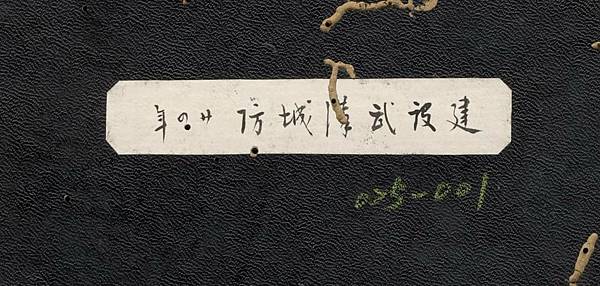 建設武漢城防 廿四年
025-001